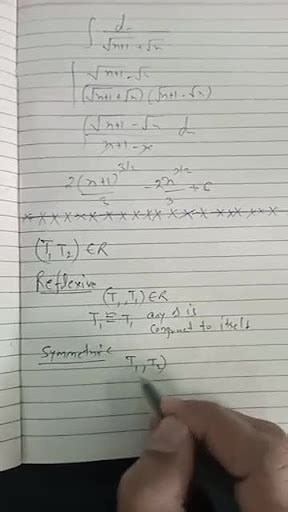 ∫ dx
√x+1 + √x
∫ √x+1 - √x
(√x+1 + √x) (√x+1 - √x)
∫ √x+1 - √x dx
x+1 - x
2(x+1)^3/2 / 3 - 2x^3/2 / 3 + C
x x x x x x x x x x x x x x x x x x x
(T1 T2) ∈ R
Reflexive
(T1, T1) ∈ R
T1 ≅ T1 any Δ is
congruent to itself
Symmetric T1, T2)